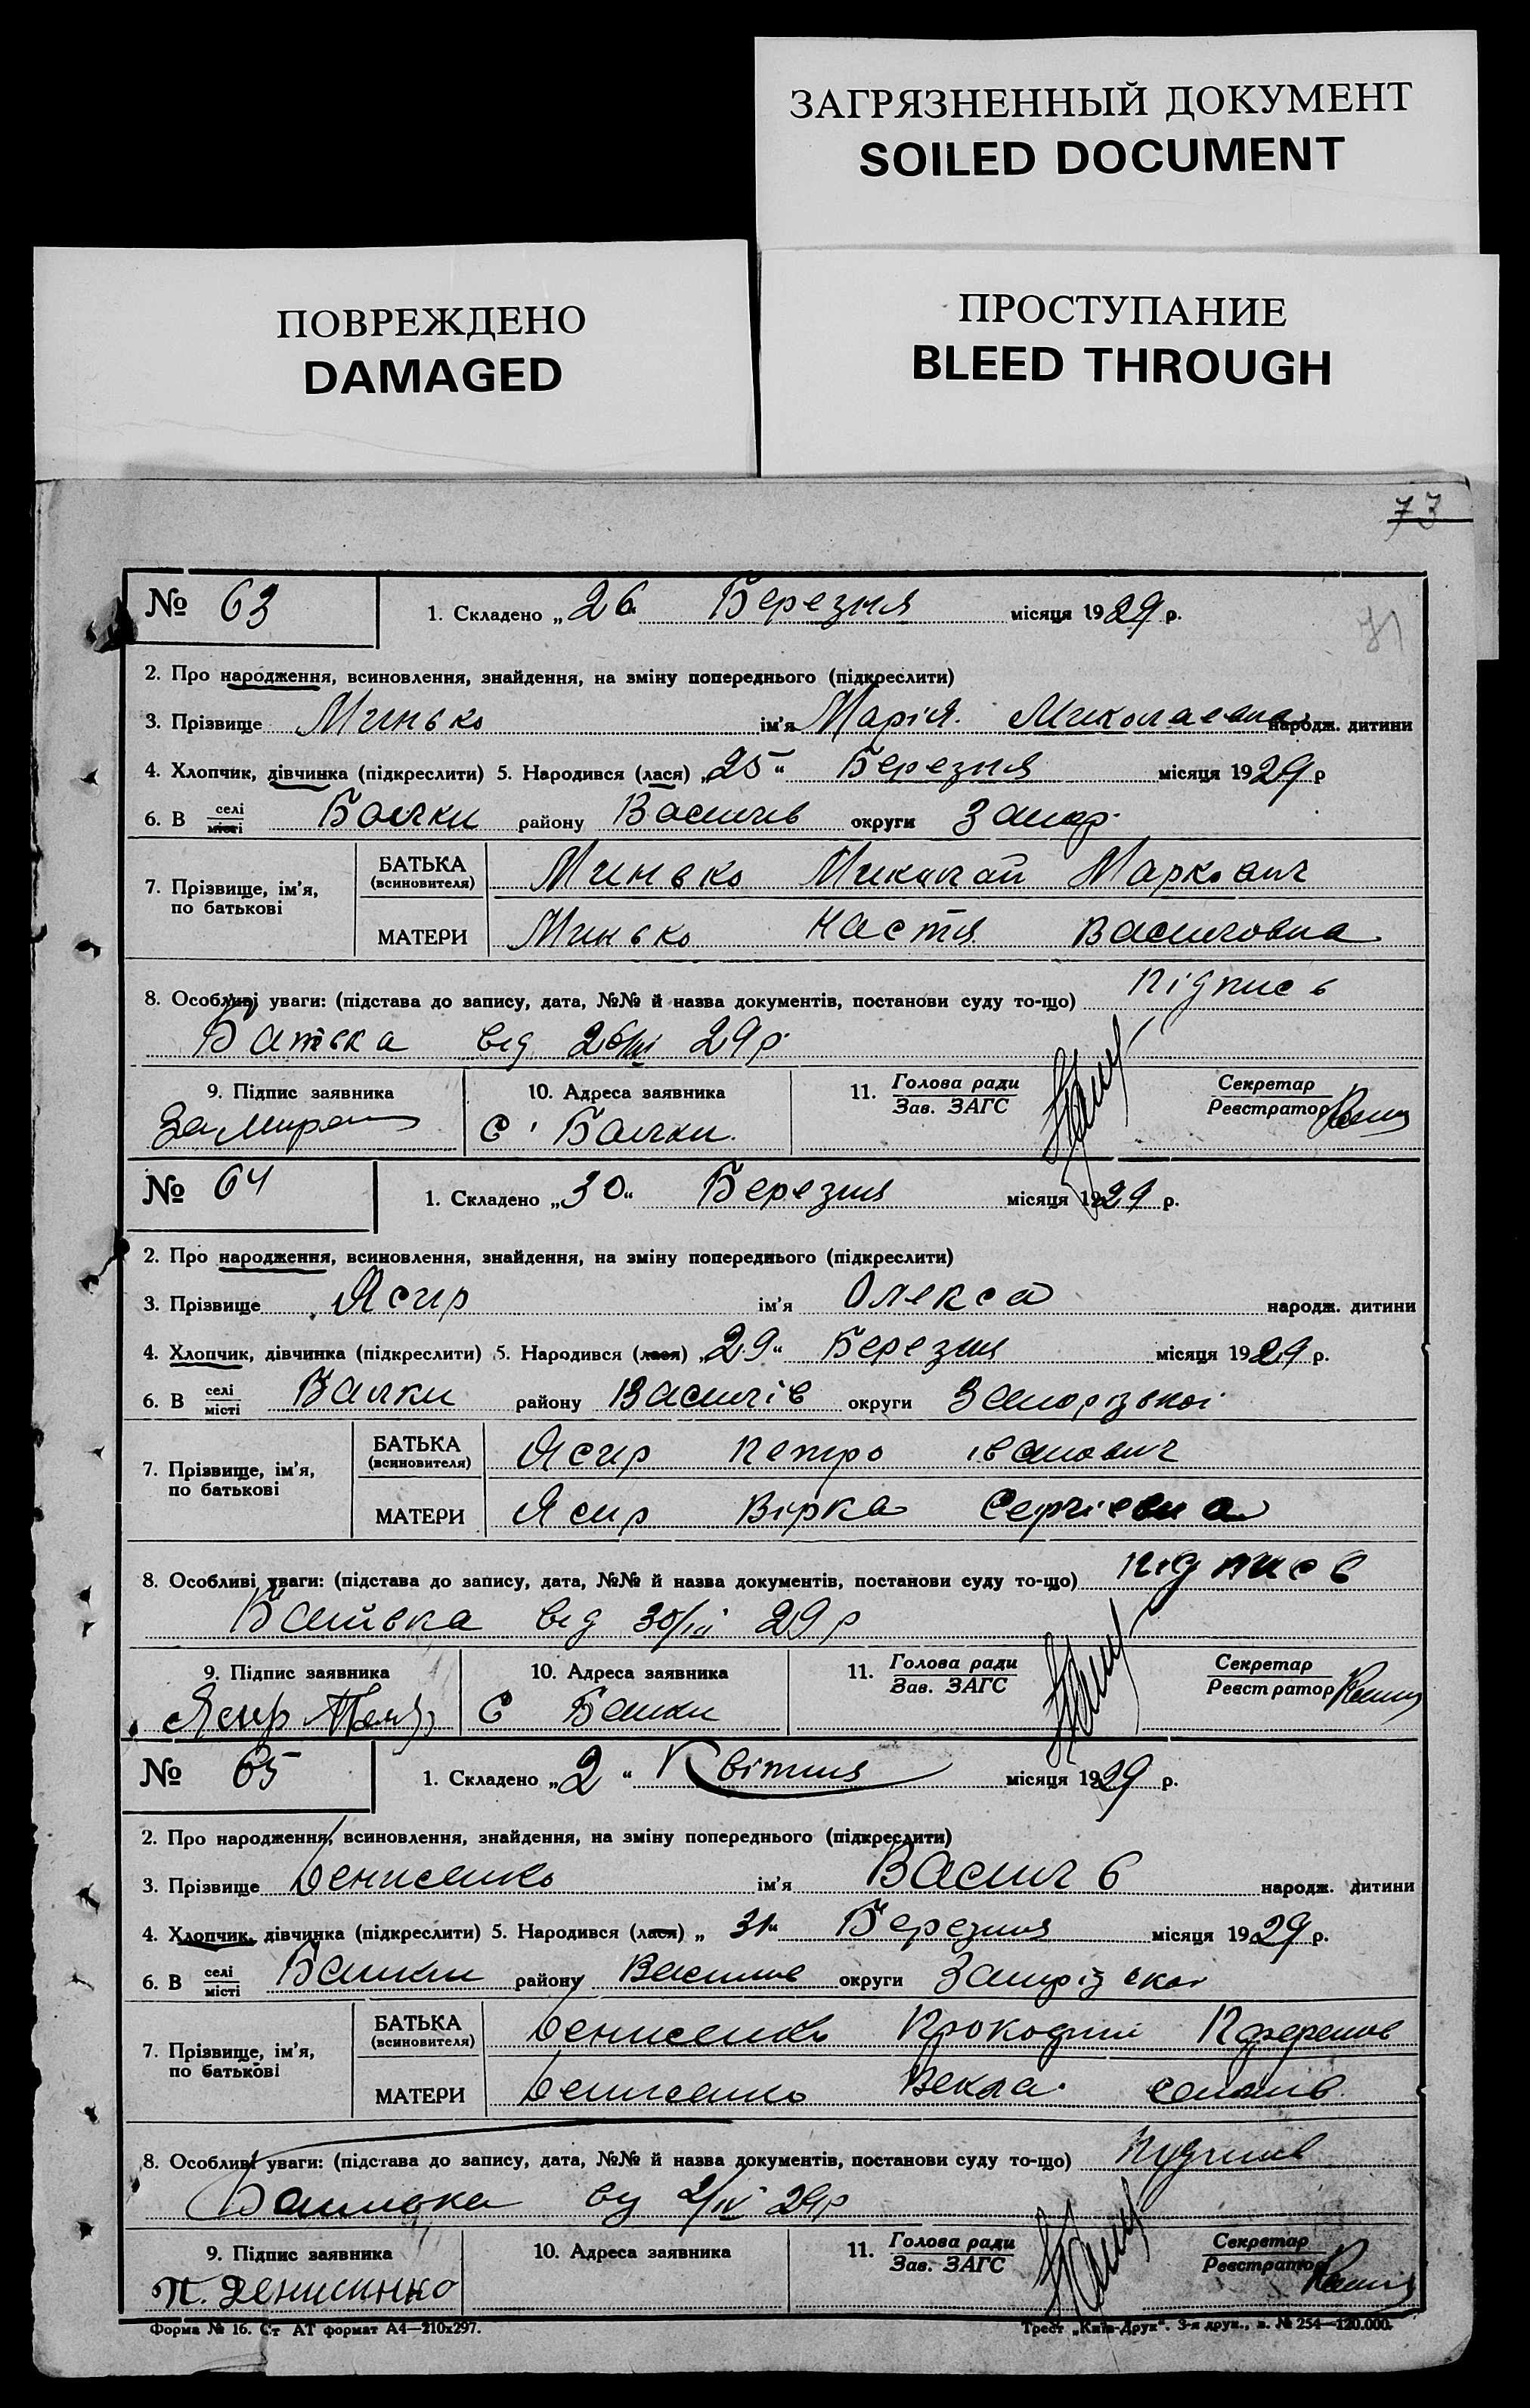 ЗАГРЯЗНЕННЫЙ ДОКУМЕНТ
SOILED DOCUMENT
ПОВРЕЖДЕНО
DAMAGED
ПРОСТУПАНИЕ
BLEED THROUGH
73
71
№ 63 1. Складено „26 Березня місяця 1929 р.
2. Про народження, всиновлення, знайдення, на зміну попереднього (підкреслити)
3. Прізвище Минько ім'я Марія Миколаевна народж. дитини
4. Хлопчик, дівчинка (підкреслити) 5. Народився (лася) „25“ Березня місяця 1929 р
6. В селі місті Балки району Василів округи Запор.
7. Прізвище, ім'я, по батькові БАТЬКА (всиновителя) Минько Миколай Маркович
МАТЕРИ Минько Настя Василовна
8. Особливі уваги: (підстава до запису, дата, №№ й назва документів, постанови суду то-що) підпись
Батька від 26/III 29 р
9. Підпис заявника 10. Адреса заявника 11. Голова ради Зав. ЗАГС Секретар Реєстратор
С. Балки.
№ 64 1. Складено „30“ Березня місяця 1929 р.
2. Про народження, всиновлення, знайдення, на зміну попереднього (підкреслити)
3. Прізвище Ясир ім'я Олекса народж. дитини
4. Хлопчик, дівчинка (підкреслити) 5. Народився (лася) „29“ Березня місяця 1929 р.
6. В селі місті Балки району Василів округи Запорізькоі
7. Прізвище, ім'я, по батькові БАТЬКА (всиновителя) Ясир Петро іванович
МАТЕРИ Ясир Вірка Сергіевна
8. Особливі уваги: (підстава до запису, дата, №№ й назва документів, постанови суду то-що) підпись
Батька від 30/III 29 р
9. Підпис заявника 10. Адреса заявника 11. Голова ради Зав. ЗАГС Секретар Реєстратор
Ясир С Балки
№ 65 1. Складено „2“ Квітня місяця 1929 р.
2. Про народження, всиновлення, знайдення, на зміну попереднього (підкреслити)
3. Прізвище Денисенко ім'я Василь народж. дитини
4. Хлопчик, дівчинка (підкреслити) 5. Народився (лася) „31“ Березня місяця 1929 р.
6. В селі місті Балки району Василів округи Запорізькоі
7. Прізвище, ім'я, по батькові БАТЬКА (всиновителя) Денисенко
МАТЕРИ Денисенко Векла
8. Особливі уваги: (підстава до запису, дата, №№ й назва документів, постанови суду то-що) підпись
Батька від 2/IV 29 р
9. Підпис заявника 10. Адреса заявника 11. Голова ради Зав. ЗАГС Секретар Реєстратор
П. Денисинко
Форма № 16. Ст АТ формат А4—210x297. Трест „Київ-Друк“. 3-я друк., з. № 254—120.000.